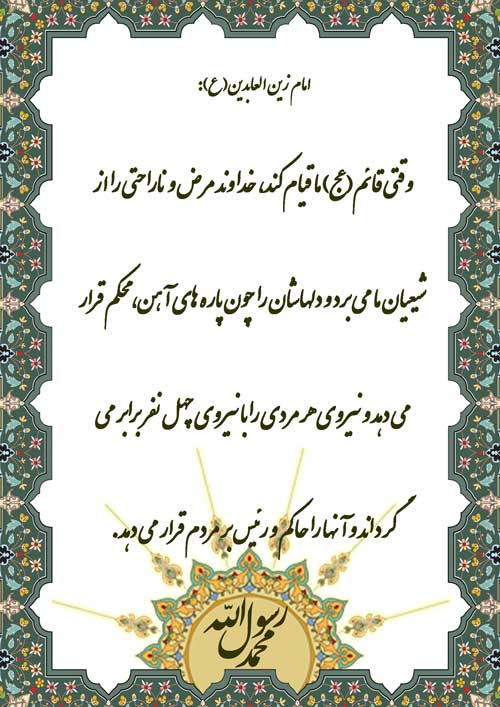 امام زین العابدین(ع):
وقتی قائم (عج) ما قیام کند، خداوند مرض و ناراحتی را از
شیعیان ما می برد و دلهاشان را چون پاره های آهن، محکم قرار
می دهد و نیروی هر مردی را با نیروی چهل نفر برابر می
گرداند و آنها را حاکم و رئیس بر مردم قرار می دهد.
محمد رسول الله